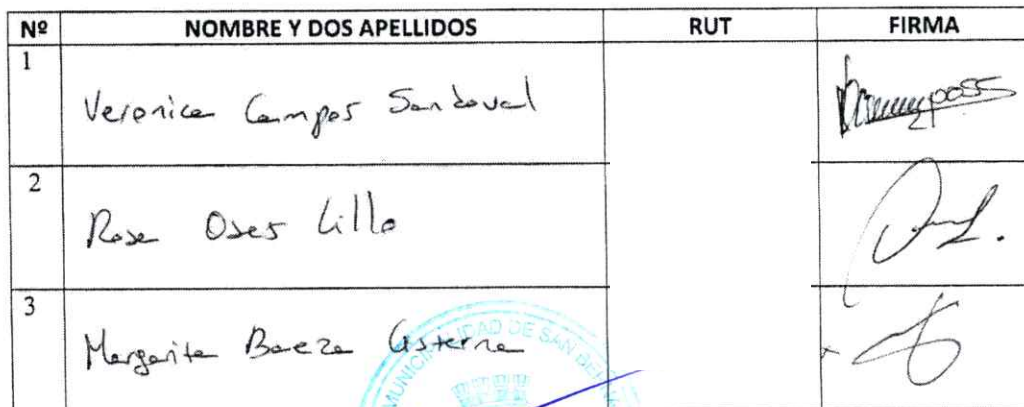 Nº NOMBRE Y DOS APELLIDOS RUT FIRMA
1 Veronica Campos Sandoval
2 Rosa Oses Lillo
3 Margarita Baeza Cisterna
MUNICIPALIDAD DE SAN BER